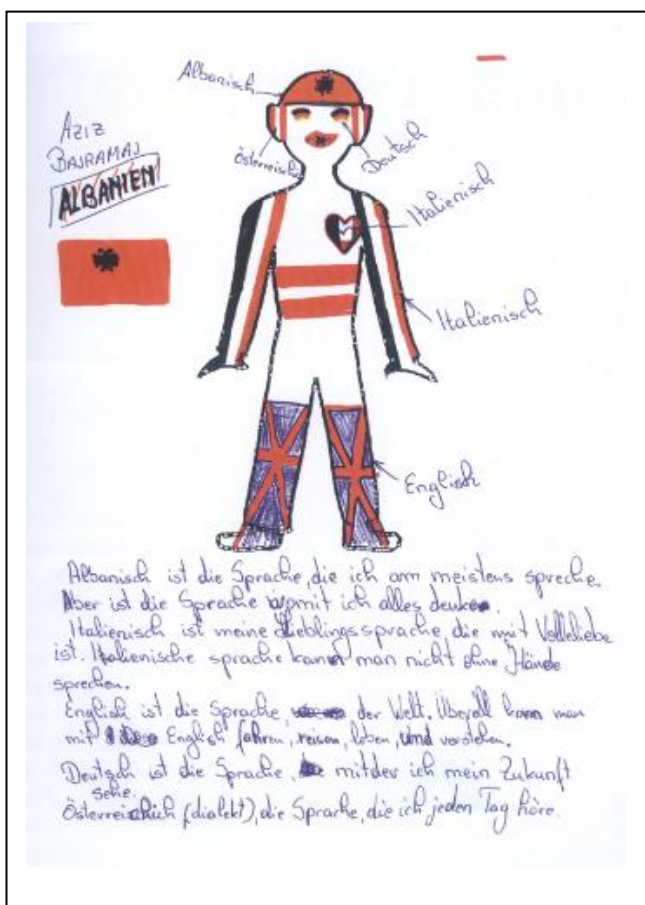 Albanisch
AZIZ
BAJRAMAJ
ALBANIEN
Österreisch
Deutsch
Italienisch
Italienisch
English
Albanisch ist die Sprache, die ich am meistens spreche.
Aber ist die Sprache womit ich alles denke.
Italienisch ist meine Lieblingssprache, die mit Volleliebe
ist. Italienische sprache kann man nicht ohne Hände
sprechen.
English ist die Sprache, der Welt. Überall kann man
mit English fahren, reisen, leben, und verstehen.
Deutsch ist die Sprache, mitder ich mein Zukunft
sehe.
Österreichich (dialekt), die Sprache, die ich jeden Tag höre.